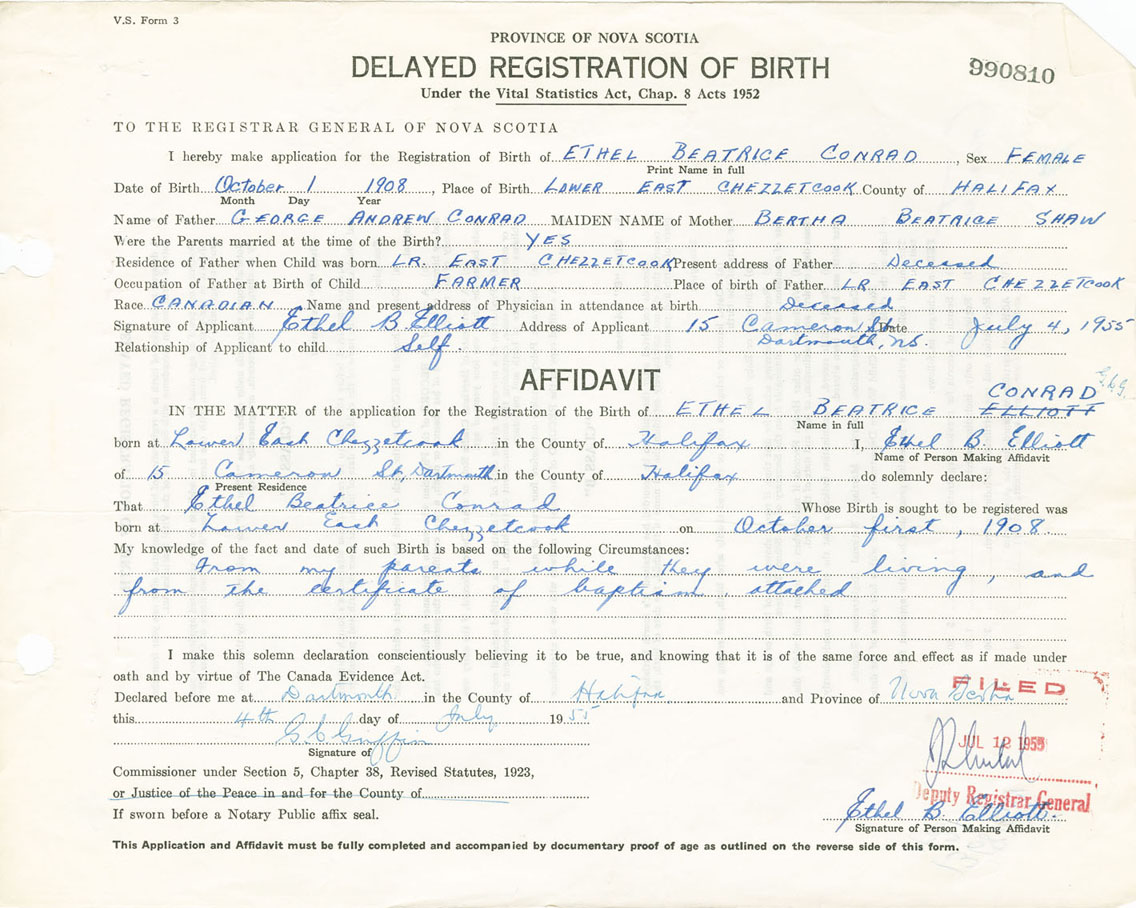 V.S. Form 3
PROVINCE OF NOVA SCOTIA
DELAYED REGISTRATION OF BIRTH
990810
Under the Vital Statistics Act, Chap. 8 Acts 1952
TO THE REGISTRAR GENERAL OF NOVA SCOTIA
I hereby make application for the Registration of Birth of ETHEL BEATRICE CONRAD, Sex FEMALE
Print Name in full
Date of Birth October 1 1908, Place of Birth LOWER EAST CHEZZETCOOK County of HALIFAX
Month Day Year
Name of Father GEORGE ANDREW CONRAD MAIDEN NAME of Mother BERTHA BEATRICE SHAW
Were the Parents married at the time of the Birth? YES
Residence of Father when Child was born LR. EAST CHEZZETCOOK Present address of Father Deceased
Occupation of Father at Birth of Child FARMER Place of birth of Father LR EAST CHEZZETCOOK
Race CANADIAN Name and present address of Physician in attendance at birth Deceased
Signature of Applicant Ethel B Elliott Address of Applicant 15 Cameron St. Date July 4, 1955
Relationship of Applicant to child Self. Dartmouth, NS.
AFFIDAVIT
CONRAD G.C.G.
IN THE MATTER of the application for the Registration of the Birth of ETHEL BEATRICE ELLIOTT
Name in full
born at Lower East Chezzetcook in the County of Halifax I, Ethel B. Elliott
Name of Person Making Affidavit
of 15 Cameron St, Dartmouth in the County of Halifax do solemnly declare:
Present Residence
That Ethel Beatrice Conrad Whose Birth is sought to be registered was
born at Lower East Chezzetcook on October first, 1908.
My knowledge of the fact and date of such Birth is based on the following Circumstances:
From my parents while they were living, and
from the certificate of baptism attached
I make this solemn declaration conscientiously believing it to be true, and knowing that it is of the same force and effect as if made under
oath and by virtue of The Canada Evidence Act.
Declared before me at Dartmouth in the County of Halifax and Province of Nova Scotia
FILED
this 4th day of July 1955
G C Griffin
JUL 12 1955
Signature of
Commissioner under Section 5, Chapter 38, Revised Statutes, 1923,
or Justice of the Peace in and for the County of
Deputy Registrar General
If sworn before a Notary Public affix seal.
Ethel B. Elliott.
Signature of Person Making Affidavit
This Application and Affidavit must be fully completed and accompanied by documentary proof of age as outlined on the reverse side of this form.